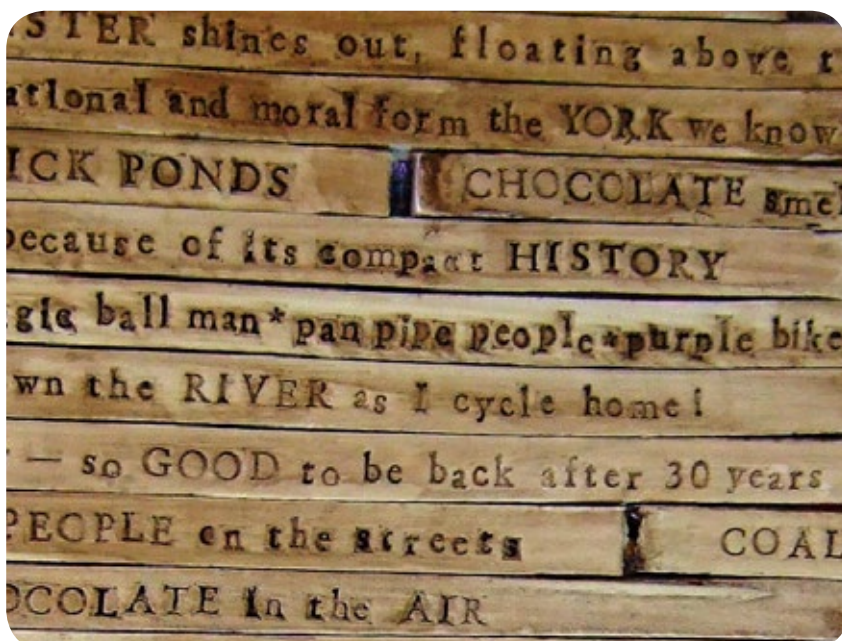 STER shines out, floating above t
ational and moral form the YORK we know
ICK PONDS CHOCOLATE smel
because of its compact HISTORY
gic ball man*pan pipe people*purple bike
wn the RIVER as I cycle home!
— so GOOD to be back after 30 years
PEOPLE on the streets COAL
OCOLATE in the AIR